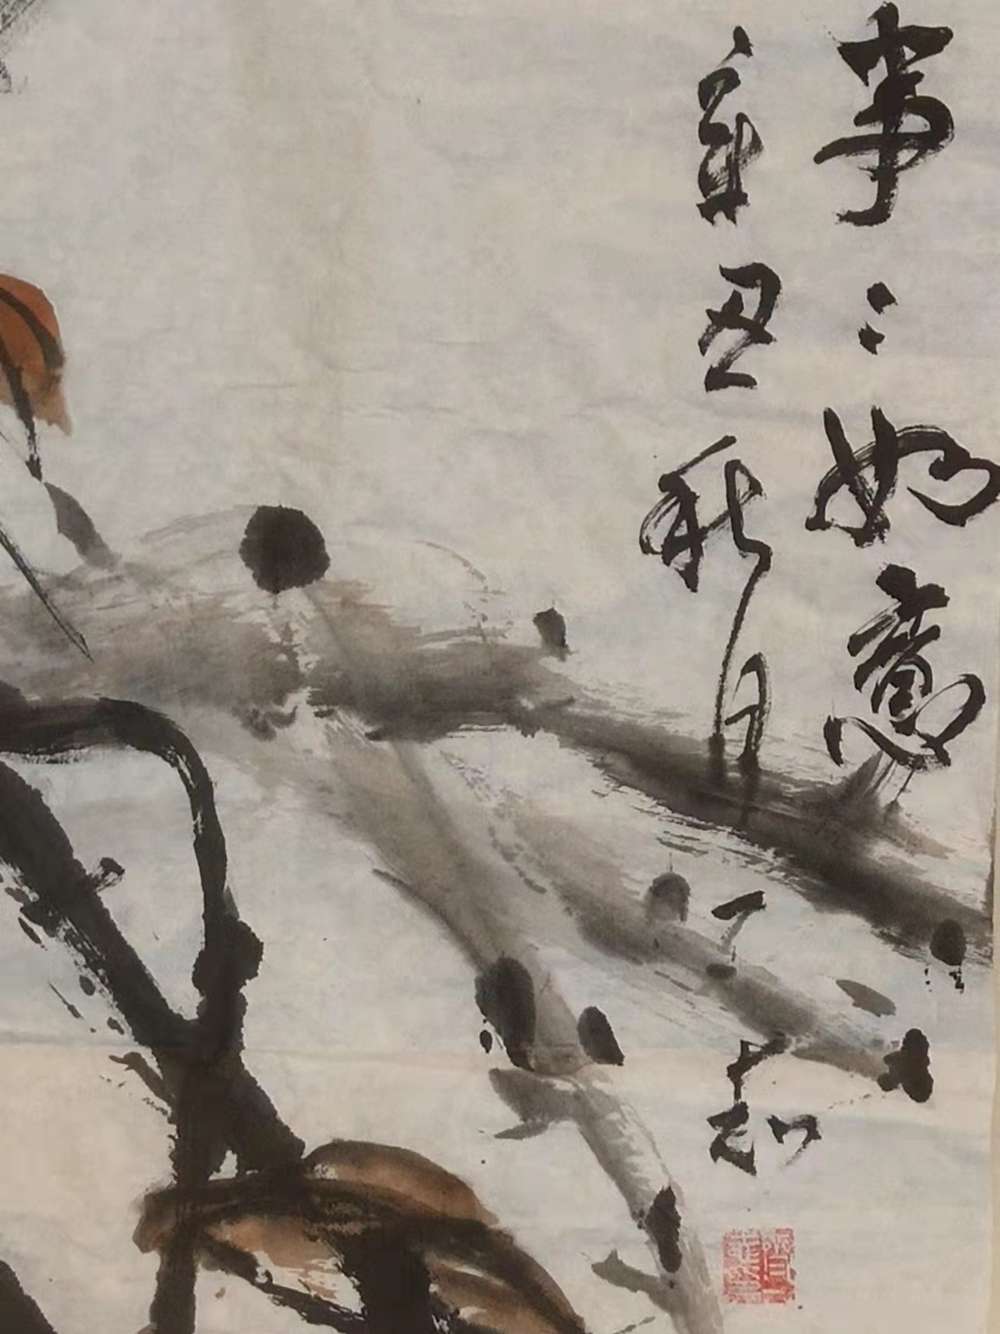 事〻如意
辛丑秋月 丁